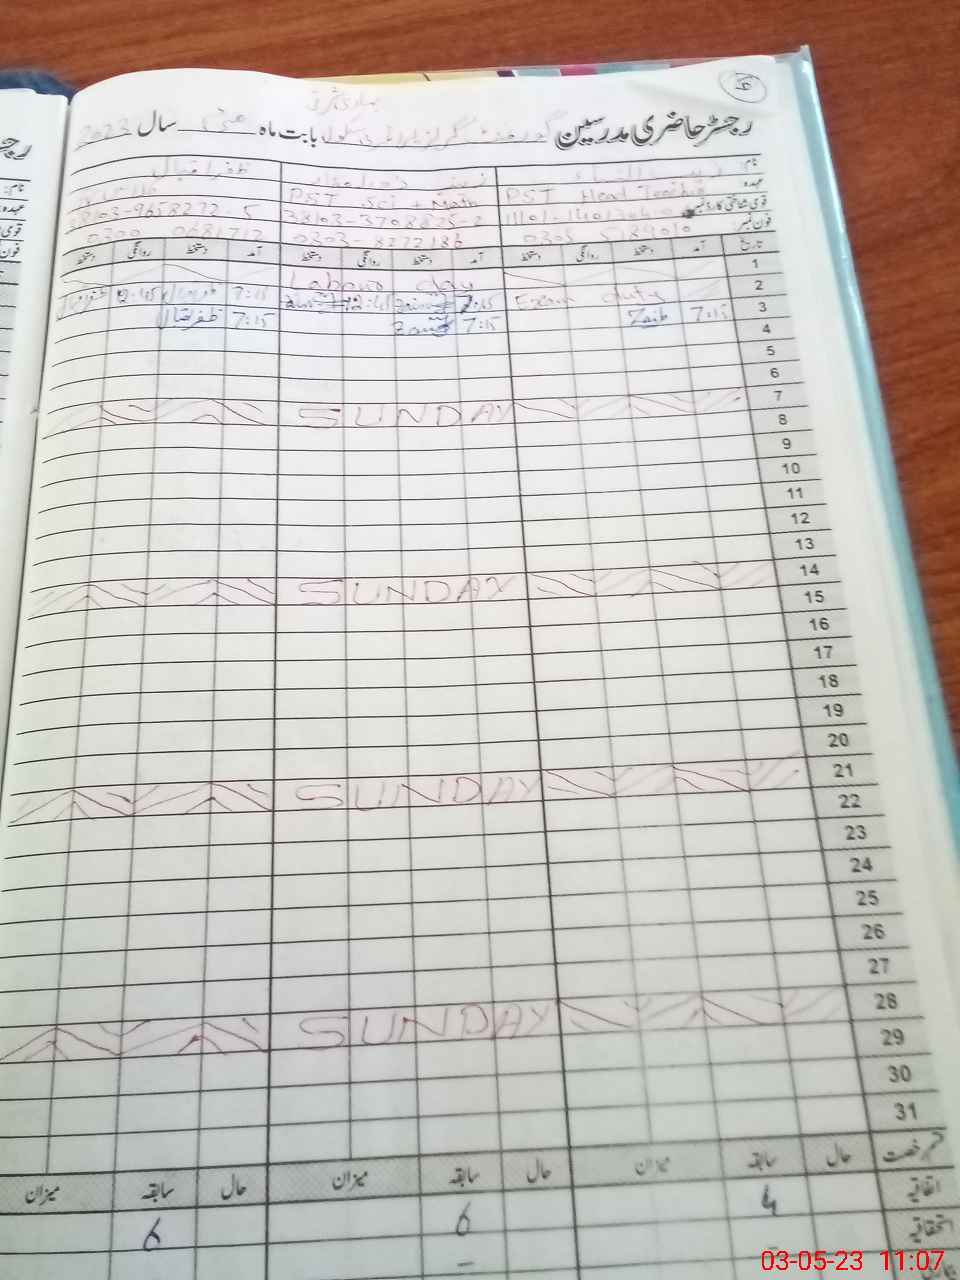 رجسٹر حاضری مدرسین گورنمنٹ گرلز ایلیمنٹری سکول بابت ماہ مئی سال 2023
نام:
عہدہ PST Head Teacher PST Sci + Math
قومی شناختی کارڈ نمبر 38103-3708825-2 38103-9658272-5
فون نمبر: 0305 5189010 0303-8272186 0300 0681712
تاریخ آمد دستخط روانگی دستخط آمد دستخط روانگی دستخط آمد دستخط روانگی دستخط
1 Labour day
2 Exam duty 7:15 12:45 7:15 12:45
3 7:15 Zaib 7:15 7:15 ظفر اقبال
4
5
6
7 SUNDAY
8
9
10
11
12
13
14 SUNDAY
15
16
17
18
19
20
21 SUNDAY
22
23
24
25
26
27
28 SUNDAY
29
30
31
قسم رخصت حال سابقہ میزان حال سابقہ میزان حال سابقہ میزان
اتفاقیہ 4 6 6
استحقاقیہ
03-05-23 11:07